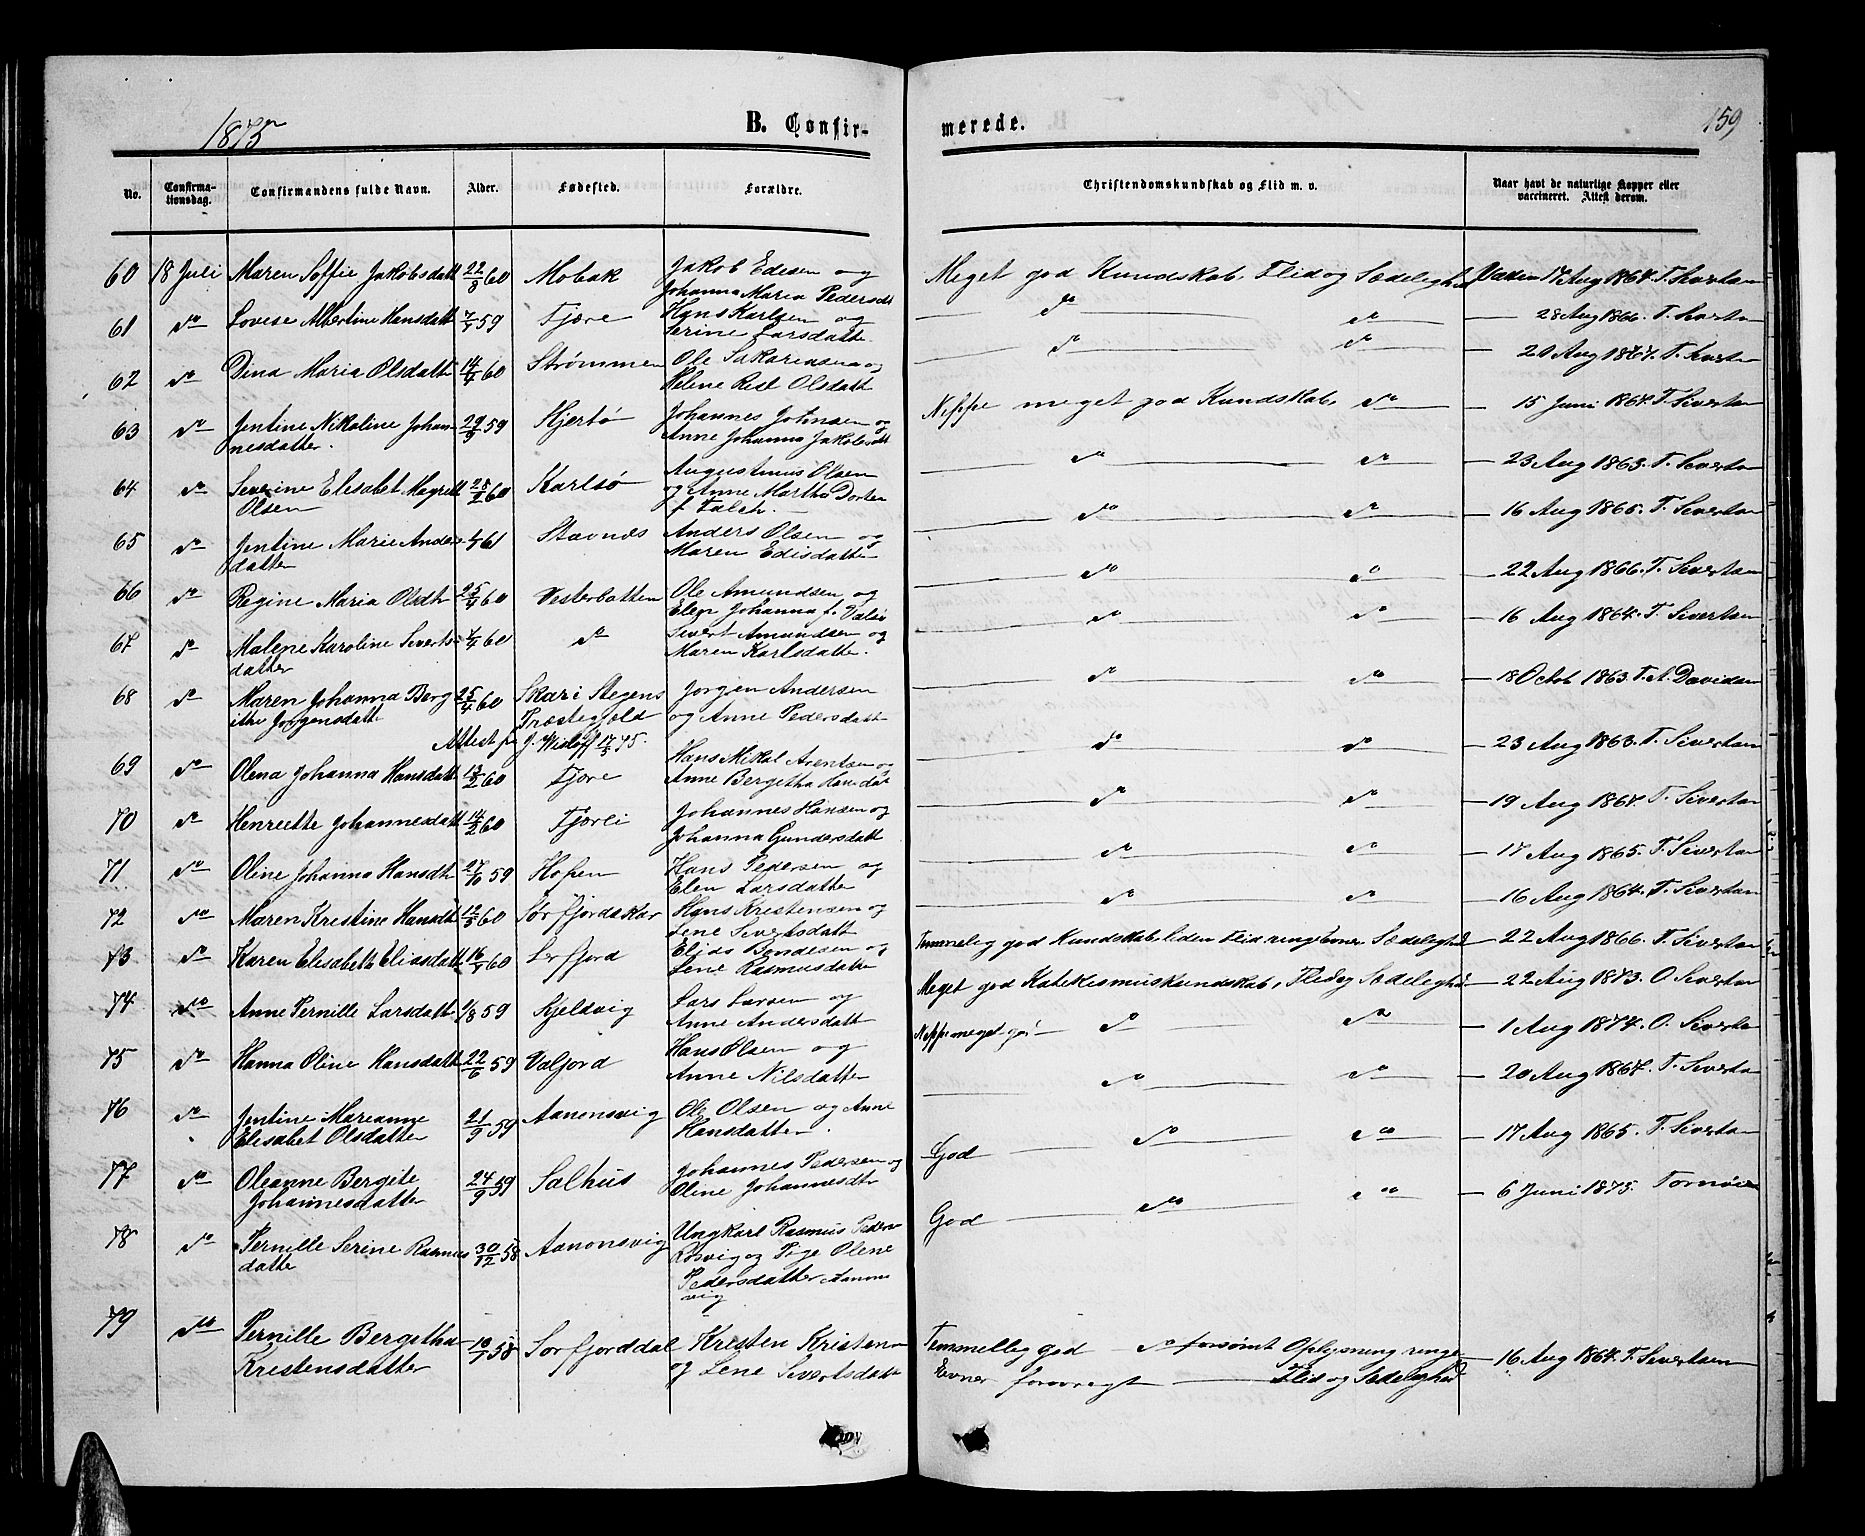 1875
B. Confir-
merede.
159
No.
Confirma-
tionsdag.
Confirmandens fulde Navn.
Alder.
Fødested.
Forældre.
Christendomskundskab og Flid m. v.
Naar havt de naturlige Kopper eller
vaccineret. Attest derom.
60 18 Juli Maren Soffie Jakobsdatt 22/8 60 Mobak Jakob Edisen og
Johanna Maria Pedersdt
Meget god Kundskab, Flid og Sædelighd 17 Aug 1864. T. Sivertsen
61 do Lovise Albertine Hansdatt 59 Fjære Hans Karlsen og
Serine Larsdatte
do do 28 Aug 1866. T. Sivertsen
62 do Dina Maria Olsdatt 14/4 60 Strømmen Ole Sakariasen og
Helene Olsdatt
do do 20 Aug 1867. T. Sivertsen
63 do Jentine Nikoline Johan- 29/9 59 Hjertø Johannes Johnsen og
nesdatter. Anne Johanna Jakobsdt
Neppe meget god Kundskab, do 15 Juni 1864. T. Sivertsen
64 do Severine Elisabet Megrett 28/2 60 Karlsø Augustinus Olsen
Olsen og Anne Martha Dortea
f. Falch.
do do 23 Aug 1863. T. Sivertsen
65 do Jentine Marie Anders 61 Stavnes Anders Olsen og
datter Maren Edisdatte
do do 16 Aug 1865. T. Sivertsen
66 do Regine Maria Olsdtr 25/4 60 Vesterbotten Ole Amundsen og
Elen Johanna f. Valsø
do do 22 Aug 1866. T. Sivertsen
67 do Malene Karoline Siverts- 60 do Sivert Amundsen og
datter Maren Karlsdatte.
do do 16 Aug 1864. T. Sivertsen
68 do Maren Johanna Berg 25/4 60 Skar i Stegens Jørgen Andersen
ithe Jørgensdatt Præstegjeld og Anne Pedersdatt
Attest fra J. Wisløff 17/5 75.
do do 18 Octob 1863. T. A. Davidsen
69 do Olena Johanna Hansdatt 13/2 60 Fjøre Hans Mikal Arentsen og
Anne Bergitha Hansdat
do do 23 Aug 1863. T. Sivertsen
70 do Henriette Johannesdatt 14/2 60 Fjærli Johannes Hansen og
Johanna Gundersdatt
do do 19 Aug 1864. T. Sivertsen
71 do Oline Johanna Hansdtr 27/10 59 Hopen Hans Pedersen og
Elen Larsdatte
do do 17 Aug 1865. T. Sivertsen
72 do Maren Kristine Hansdt 60 Sørfjordskar Hans Kristensen og
Lene Sivertsdatt
do do 16 Aug 1864. T. Sivertsen
73 do Karen Elisabeth Eliasdatt 16/4 60 Lerfjord Elias Bendesen og
Lene Rasmusdatte
Temmelig god Kundskab, liden Flid, ringe Evner, Sædelighd 22 Aug 1866. T. Sivertsen
74 do Anne Pernille Larsdatt 1/8 59 Kjelsvig Lars Larsen og
Anne Andersdatt
Meget god Katekismuskundskab, Flid og Sædelighd 22 Aug 1873. O. Sivertsen
75 do Hanna Oline Hansdatt 22/6 59 Valfjord Hans Olsen og
Anne Nilsdatter
Neppe meget god do do 1 Aug 1874. O. Sivertsen
76 do Jentine Marianne 21/9 59 Aanonsvig Ole Olsen og Anne
Elisabet Olsdatter Hansdatter.
do do 20 Aug 1867. T. Sivertsen
77 do Oleanne Bergite 24/9 59 Salhus Johannes Pedersen og
Johannesdatter Oline Johannesdtr
God do do 17 Aug 1865. T. Sivertsen
78 do Pernille Serine Rasmus 30/12 58 Aanonsvig Ungkarl Rasmus Peders
datter Røsvig og Pige Olene
Pedersdatter Aanons
vig
God do do 6 Juni 1875. Tornøe
79 do Pernille Bergitha 10/1 58 Sørfjorddal Kristen Kristens
Kristensdatter og Lene Sivertsdatt
Temmellig god do forsømt Oplysning ringe 16 Aug 1864. T. Sivertsen
Evner Flid og Sædelighed